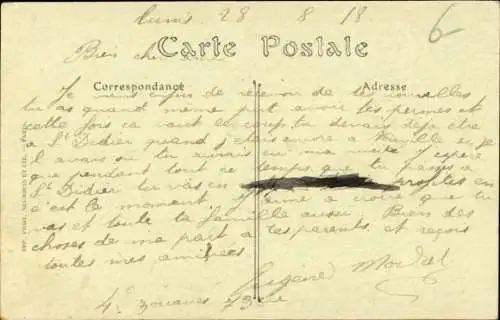 Tunis 28 8 18
Bien cher ami
Carte Postale
Correspondance
Adresse
Je viens enfin de recevoir de tes nouvelles
tu as quand même put avoir tes permes et
cette fois ca vaut le coup tu devais déjà être
à St Didier quand j'étais encore à
avais su tu aurais eu ma visite J'espère
que pendant tout ce temps que tu passes a
St Didier tu vas en profites en
c'est le moment a croire que tu
vas et toute ta famille aussi Bien des
choses de ma part a tes parents et reçois
toutes mes amitiées
Eugène
4e Zouaves 43e Cie